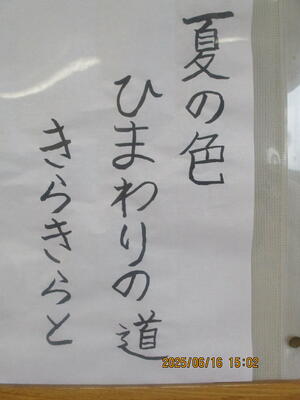 夏の色
ひまわりの道
きらきらと
2025/06/16 15:02